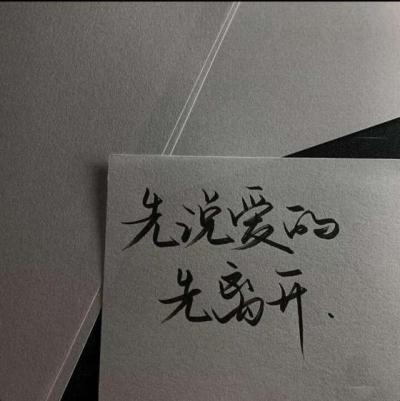 先说爱的
先离开.